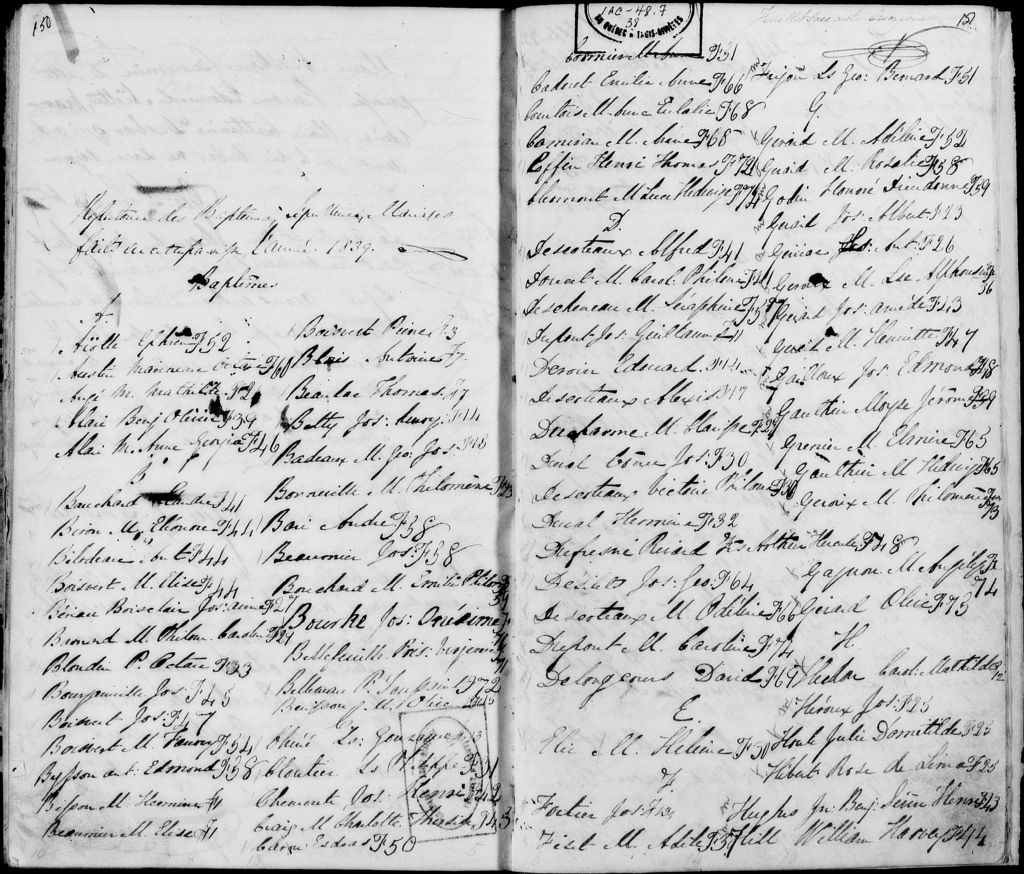 150
Répertoire des Baptêmes, Sépultures, Mariages
faits en cette paroisse l'année 1839.
Baptêmes
A
Ayotte Ephrem F52
Austin Marinneau F60
Augé M. Mathilde F2
Alari Benj Olivier F39
Alari M. Anne Georgia F46
B
Bouchard F41
Biron M. Eléonore F44
Bilodeau Ant F44
Boisvert M. Elise F44
Bériau Boisclair Jos: aimé F27
Bernard M. Philom. Caroline F24
Blondin P. Octave F23
Bourgainville Jos F45
Boisvert Jos: F47
Boisvert M. Fanny F54
Bysson ant. Edmond F58
Besson M. Hermine F1
Beaumier M. Elise F1
Boisvert Pierre F3
Blais Antoine F7
Beaulac Thomas F7
Betty Jos: henry F14
Badeaux M. Geo. Jos: F15
Bonneville M. Philomène
Bari André F38
Beaumier Jos: F58
Bouchard M. Emilie Philom
Bourke Jos: Onésime
Bellefeuille Pris: Virginie
Bellemare P. Toussaint F72
Chiné Ls: Gonzague
Cloutier Ls Philippe F31
Chenonte Jos: Henri F42
Craig M. Charlotte F45
Caron Esdras F50
151
IAC-48.7
38
F51
Cadoret Emilie Anne F66
Courtois M. Anne Eulalie F68
Camiran M. Anne F68
Coffin Henri Thomas F72
Clermont M Luce Hedwige F74
D
Descoteaux Alfred F41
Douat M. Carol. Philom F41
Descheneau M. Séraphine F57
Dupont Jos: Guillaume F11
Derouin Edouard F14
Descoteaux Alexis F17
Ducharme M. F29
Duval Côme Jos: F30
Descoteaux Victoire Philom F30
Duval Hermine F32
Dufresne Richard Ws Arthur Hercules F48
Désilets Jos: Geo: F64
Descoteaux M. Odéline F66
Dupont M. Caroline F74
Delongeours David F69
E
Elie M. Hélène F30
F
Fortier Jos: F13
Fiset M. Adèle F37
Frijon Ls Geo: Bernard F51
G.
Girard M. Adéline F52
Girard M. Rosalie F58
Godin Honoré Dieudonné F59
Girard Jos: Albert F23
Giroux Ant: F26
Giroux M. Lse Alphonsine F36
Girard Jos: amédé F43
Girard M. Henriette F47
Gailloux Jos: Edmond F18
Gauthier Moyse Jérôme F39
Grenier M Elmire F65
Gauthier M Hedwige F65
Giroux M. Philomène F73
Gagnon M F74
Girard Olive F75
H.
Carol. Mathilde
Héroux Jos: F23
Houle Julie Domitilde F23
Hébert Rose de Lima F25
Hughs Jn Benj: Henri F43
Hill William Harvey F44